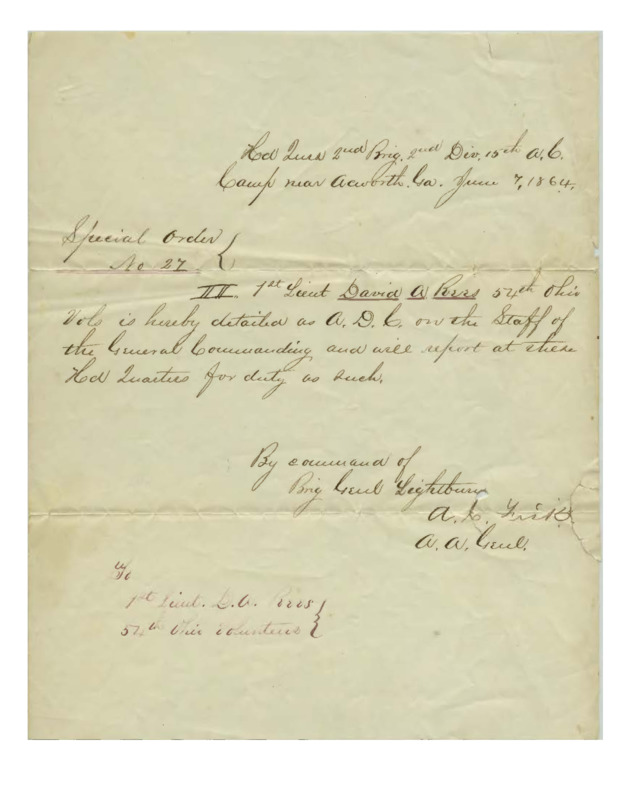 Hd Qurs 2nd Brig. 2nd Div. 15th A.C.
Camp near Acworth. Ga. June 7, 1864.
Special Order
No 27
III. 1st Lieut David A Rees 54th Ohio
Vols is hereby detailed as A. D. C. on the Staff of
the General Commanding and will report at these
Hd Quarters for duty as such.
By command of
Brig Genl Lightburn
A. C. Fisk
A. A. Genl.
To
1st Lieut. D. A. Rees
54th Ohio Volunteers